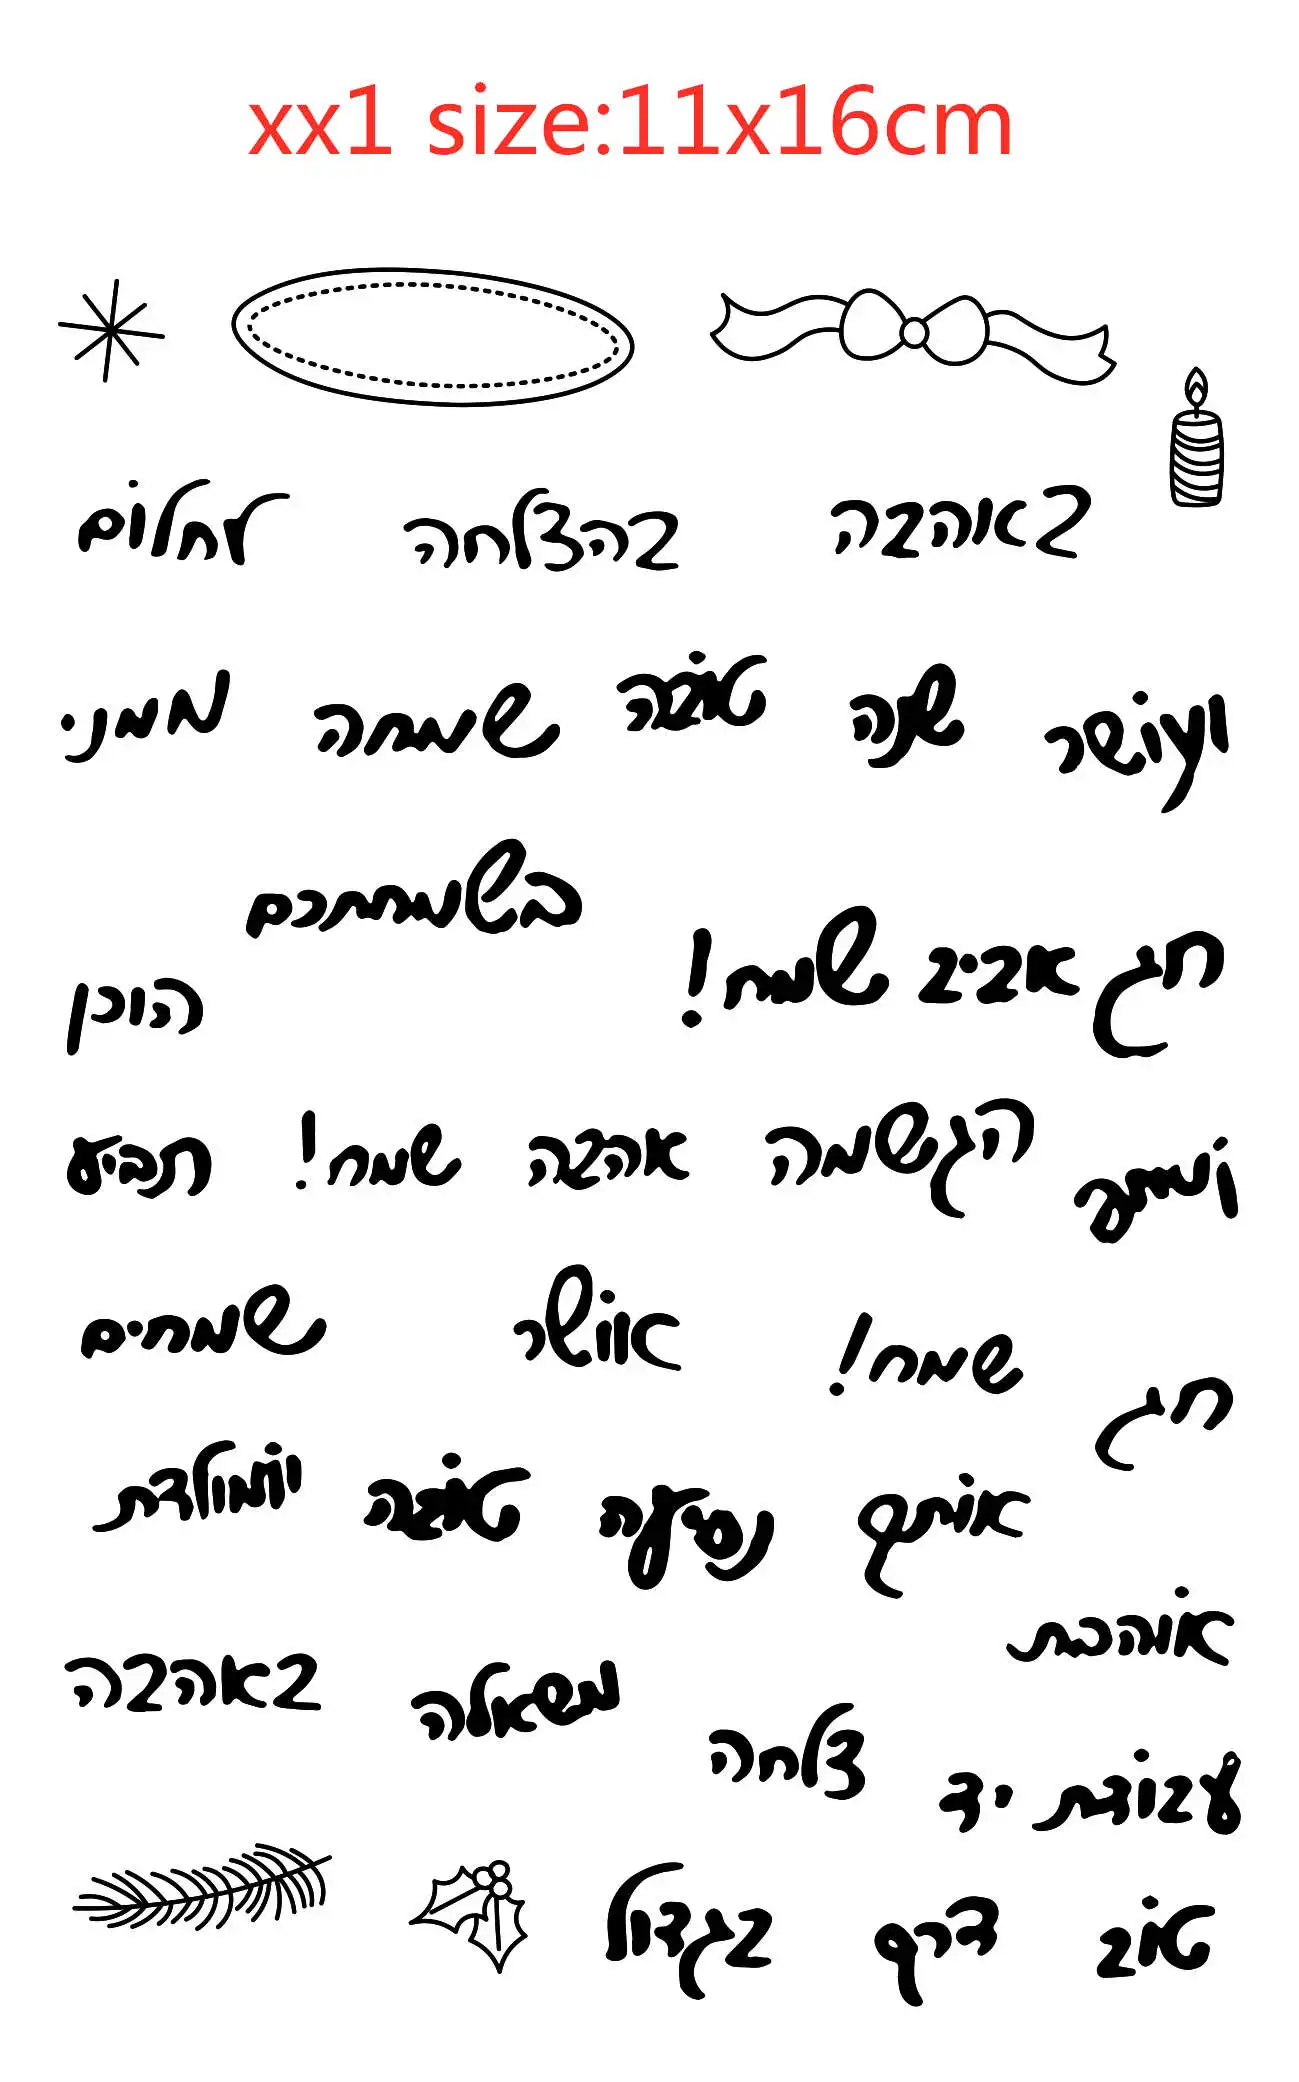 xx1 size:11x16cm
באהבה בהצלחה לחלום
ועושר שנה טובה שמחה ממני
בשמחתכם
חג אביב שמח!
הוכן
הגשמה אהבה שמח! תביע
אושר שמחים
חג שמח!
נסיעה טובה יומולדת
אוהבת
באהבה משאלה
צלחה
עבודת יד
טוב דרך בגדול